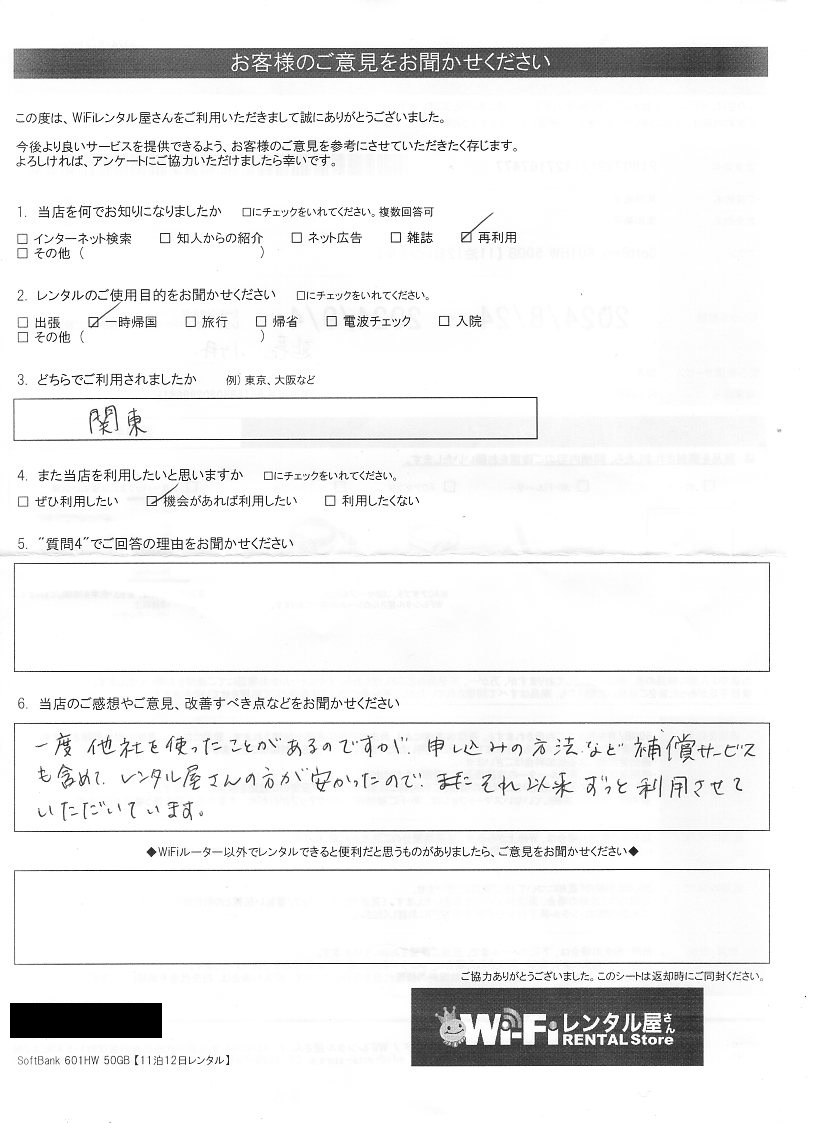 お客様のご意見をお聞かせください
この度は、WiFiレンタル屋さんをご利用いただきまして誠にありがとうございました。
今後より良いサービスを提供できるよう、お客様のご意見を参考にさせていただきたく存じます。
よろしければ、アンケートにご協力いただけましたら幸いです。
1. 当店を何でお知りになりましたか □にチェックをいれてください。複数回答可
□ インターネット検索 □ 知人からの紹介 □ ネット広告 □ 雑誌 ☑ 再利用
□ その他 ( )
2. レンタルのご使用目的をお聞かせください □にチェックをいれてください。
□ 出張 ☑ 一時帰国 □ 旅行 □ 帰省 □ 電波チェック □ 入院
□ その他 ( )
3. どちらでご利用されましたか 例) 東京、大阪など
関東
4. また当店を利用したいと思いますか □にチェックをいれてください。
□ ぜひ利用したい ☑ 機会があれば利用したい □ 利用したくない
5. “質問4”でご回答の理由をお聞かせください
6. 当店のご感想やご意見、改善すべき点などをお聞かせください
一度他社を使ったことがあるのですが、申し込みの方法など補償サービス
も含めて、レンタル屋さんの方が安かったので、それ以来ずっと利用させて
いただいています。
◆WiFiルーター以外でレンタルできると便利だと思うものがありましたら、ご意見をお聞かせください◆
ご協力ありがとうございました。このシートは返却時にご同封ください。
Wi-Fiレンタル屋さん
RENTAL Store
SoftBank 601HW 50GB【11泊12日レンタル】